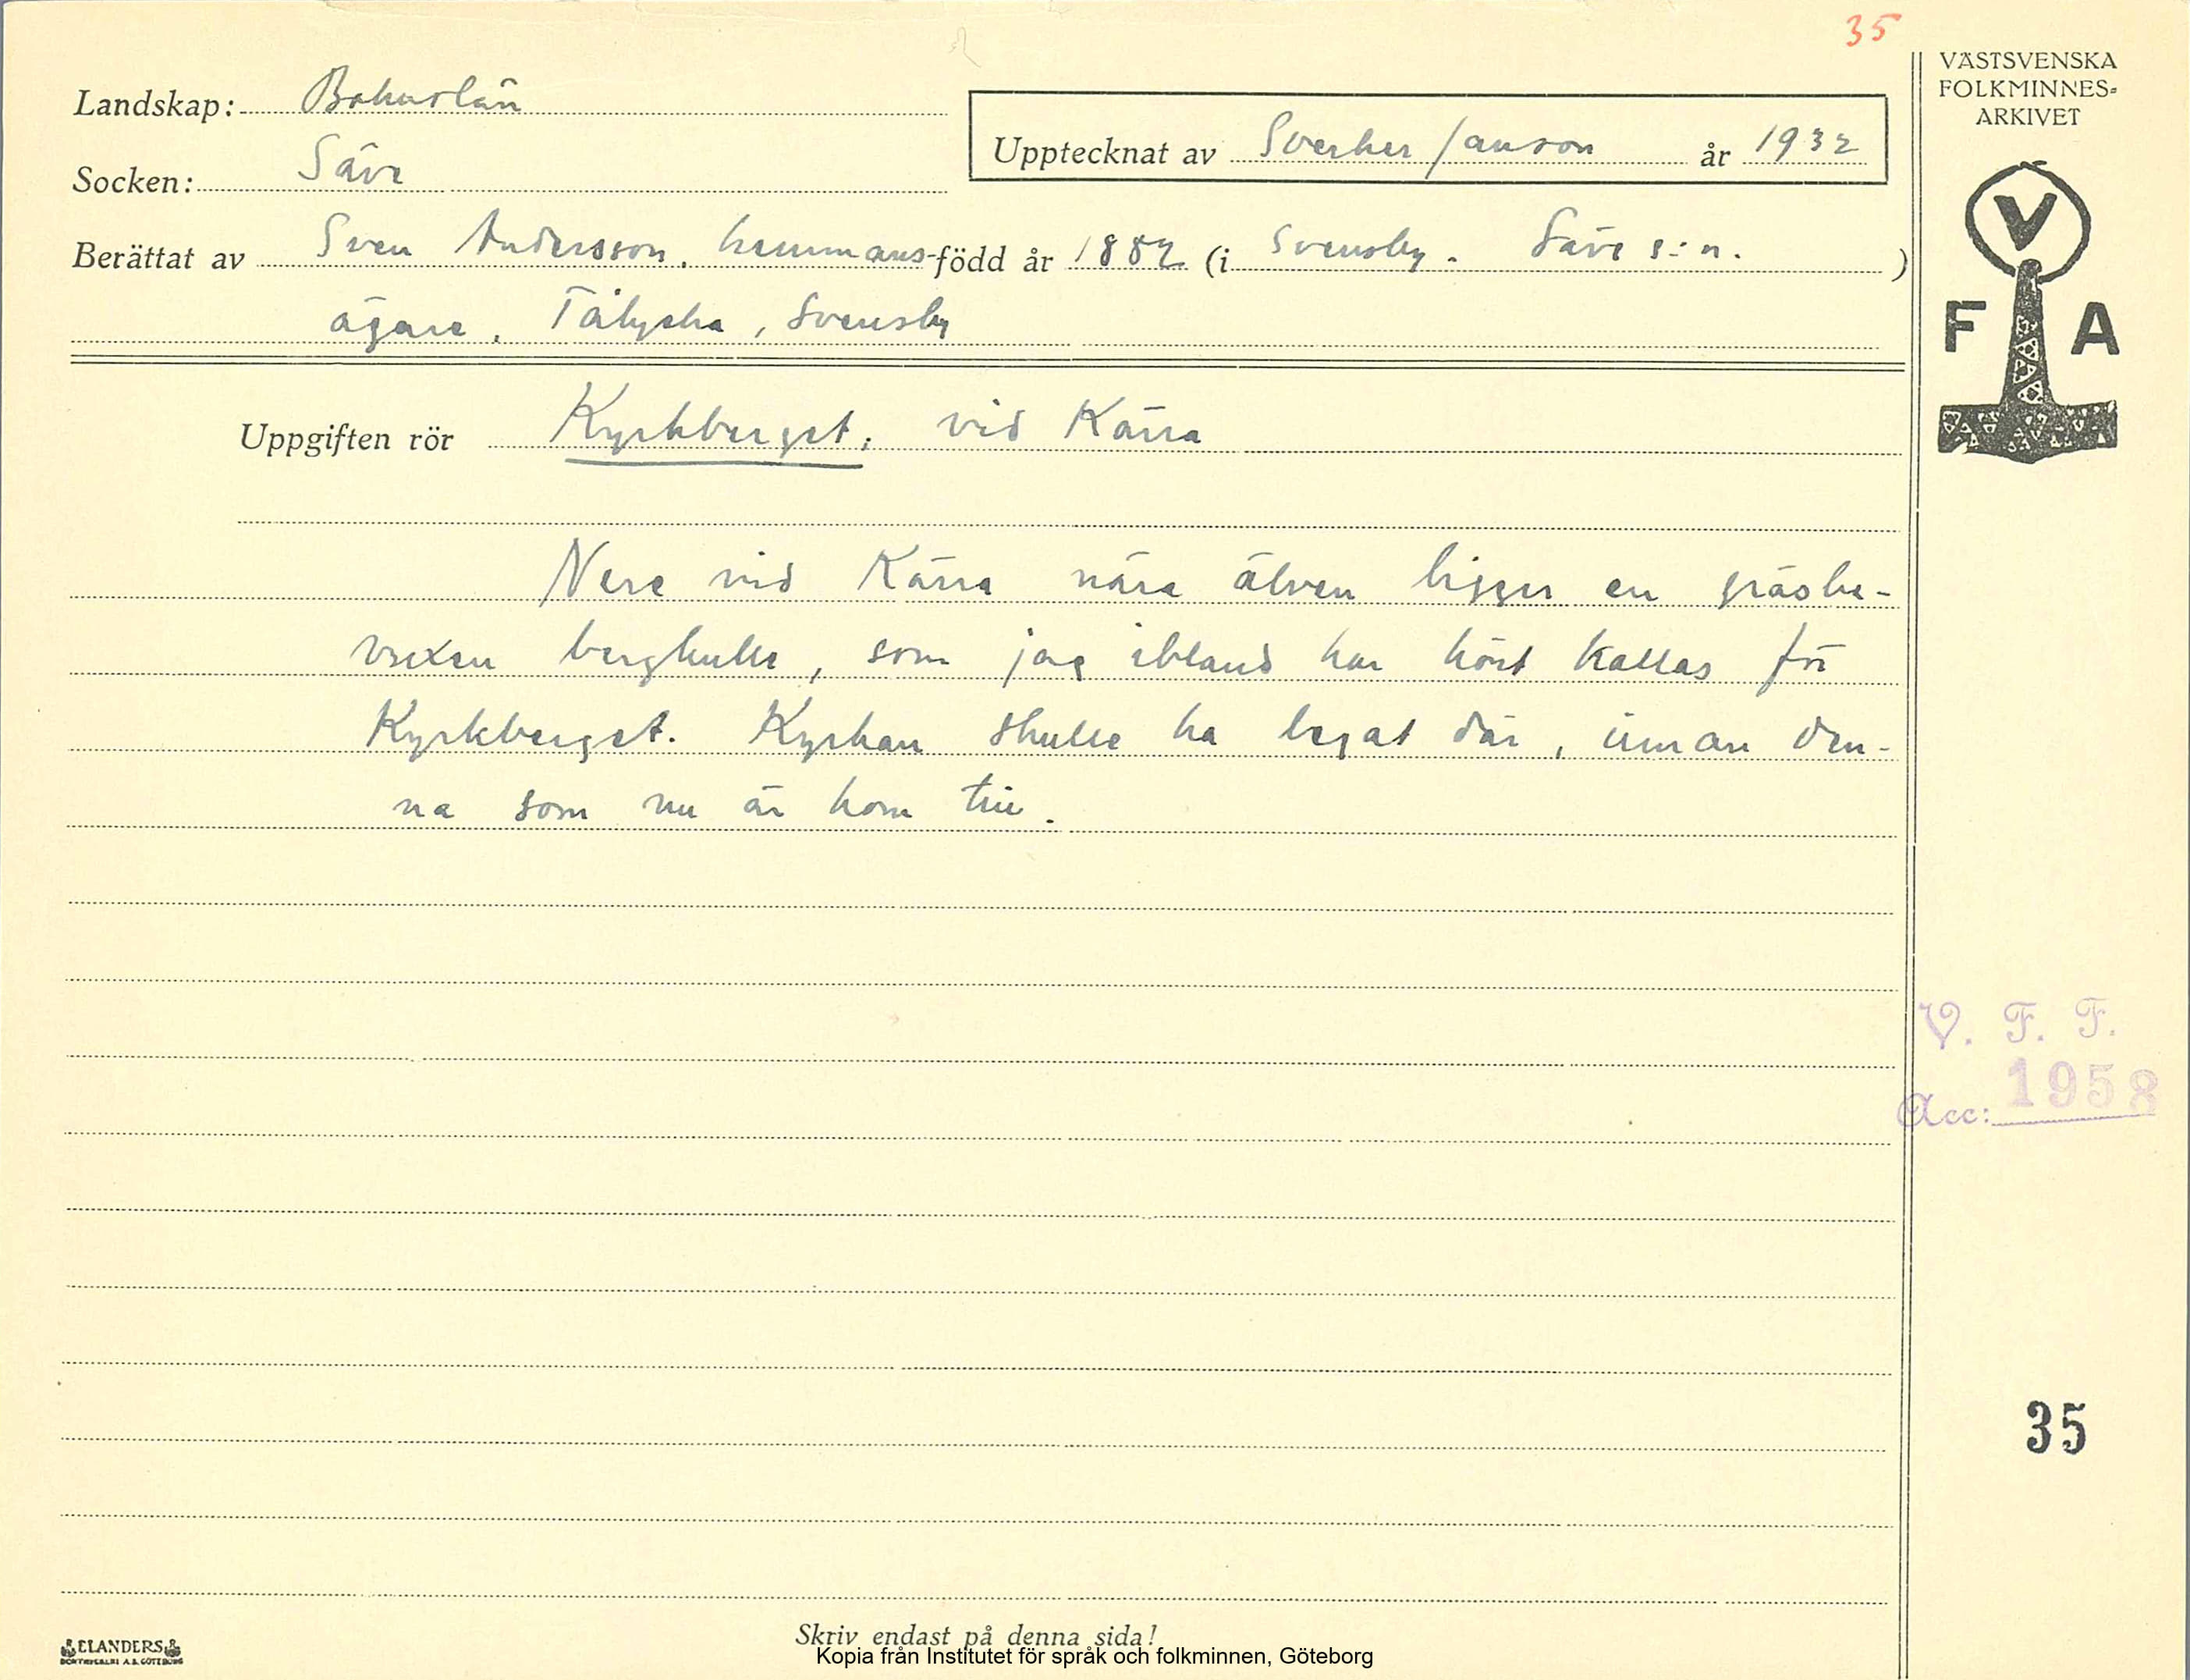 35
VÄSTSVENSKA
FOLKMINNES-
ARKIVET
Landskap: Bohuslän
Upptecknat av Sverker Janson år 1932
Socken: Säve
Berättat av Sven Andersson, hemmans- född år 1882 (i Svensby. Säve s:n. )
ägare, Tålycka, Svensby
V
F A
Uppgiften rör Kyrkberget, vid Kärra
Nere vid Kärra nära älven ligger en gräsbe-
vuxen bergkulle, som jag ibland har hört kallas för
Kyrkberget. Kyrkan skulle ha legat där, innan den-
na som nu är kom till.
V. F. F.
Acc: 1958
35
Skriv endast på denna sida!
ELANDERS
Kopia från Institutet för språk och folkminnen, Göteborg